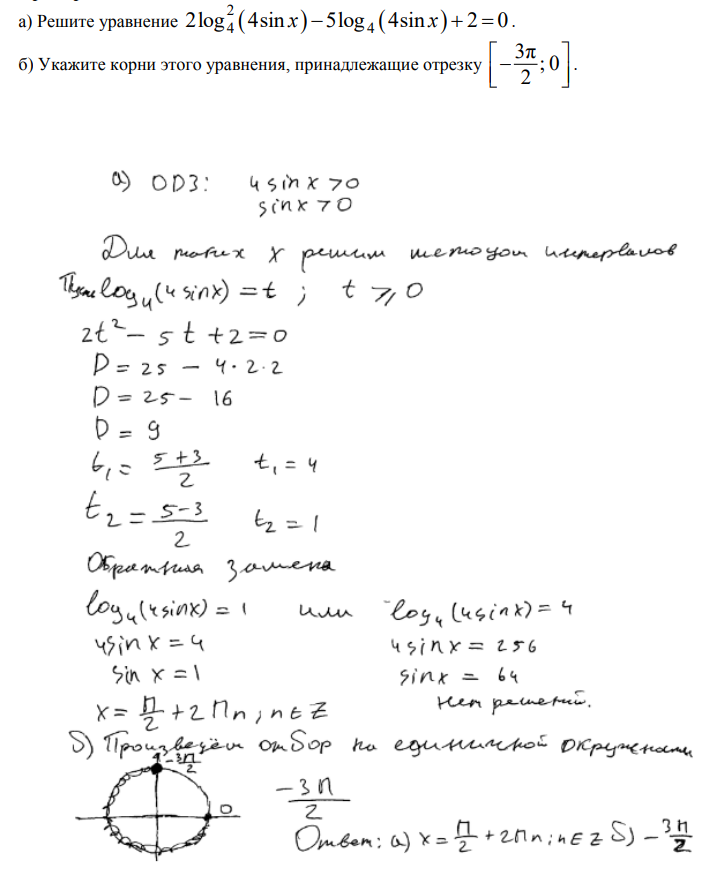 а) Решите уравнение 2log₄²(4sin x)−5log₄(4sin x)+2=0.
б) Укажите корни этого уравнения, принадлежащие отрезку [−3π/2; 0].
а) ОДЗ: 4sinx>0
sinx>0
Для таких x решим методом интервалов
Пусть log₄(4sinx)=t ; t⩾0
2t²−5t+2=0
D=25 − 4·2·2
D=25− 16
D= 9
t₁= (5+3)/2 t₁=4
t₂= (5−3)/2 t₂=1
Обратная замена
log₄(4sinx)=1 или log₄(4sinx)=4
4sinx=4 4sinx=256
sin x=1 sinx = 64
x= П/2 +2Пn; n∈Z Нет решений.
б) Произведём отбор на единичной окружности
−3П/2
0
−3П/2
Ответ: а) x= П/2 +2Пn; n∈Z б) −3П/2